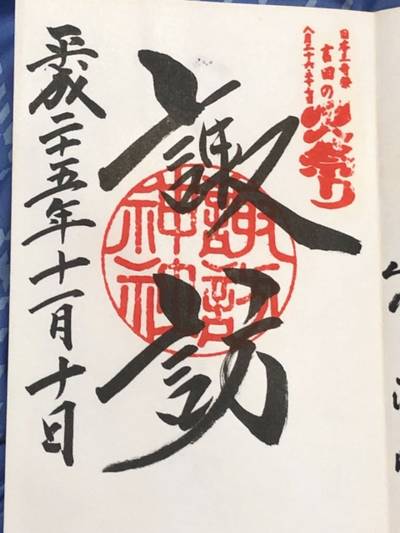 日本三奇祭
吉田の
火祭り
八月二十六・二十七日
諏訪
諏訪
神社
平成二十五年十一月十日